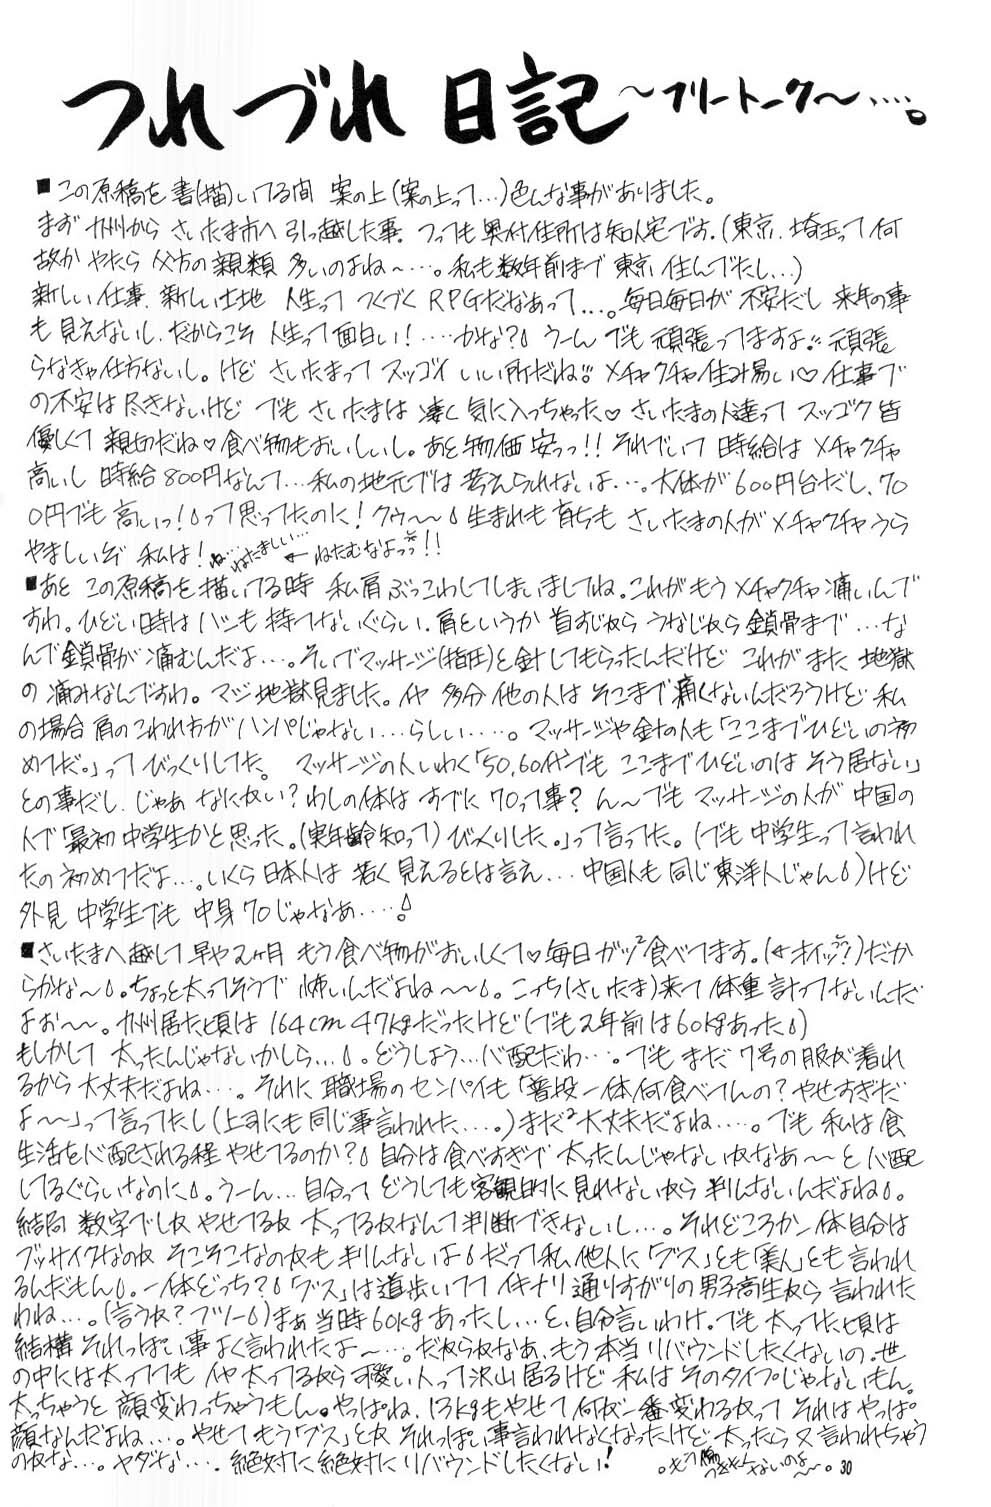 つれづれ日記 〜フリートーク〜‥‥。
■この原稿を書(描)いてる間 案の上(案の上って…)色んな事がありました。
まず 九州から さいたま市へ 引っ越した事。つっても奥付住所は知人宅です。(東京、埼玉って何
故か やたら 父方の親類 多いのよね〜…。私も数年前まで 東京 住んでたし…)
新しい仕事、新しい土地 人生って つくづく RPGだなあって…。毎日毎日が 不安だし 来年の事
も 見えないし、だからこそ 人生って面白い!‥‥かな?う〜ん でも 頑張ってますよ!! 頑張
らなきゃ仕方ないし。けど さいたまって スッゴイ いい所だね!! メチャクチャ住み易い♡ 仕事で
の不安は 尽きないけど でも さいたまは 凄く 気に入っちゃった♡ さいたまの人達って スッゴク 皆
優しくて 親切だね♡ 食べ物もおいしいし。あと 物価 安っっ!! それでいて 時給は メチャクチャ
高いし 時給800円なんて…私の地元では 考えられないよ…。大体が 600円台だし、70
0円でも 高いっ!って思ってたのに!クゥ〜〜 生まれも 育ちも さいたまの人が メチャクチャ うら
やましいぞ 私は! ね…ねたましい… ←ねたむなよっっ!!
■あと この原稿を 描いてる時 私 肩 ぶっこわしてしまいましてね。これがもう メチャクチャ 痛いんで
すわ。ひどい時は ハシも 持てないぐらい、肩というか 首すじから うなじから 鎖骨まで…な
んで鎖骨が 痛むんだよ…。そいでマッサージ(指圧)と針してもらったんだけど これがまた 地獄
の 痛みなんですわ。マジ 地獄 見ました。イヤ 多分 他の人は そこまで痛くないんだろうけど 私
の場合 肩のこわれ方が ハンパじゃない…らしい‥‥。マッサージや針の人も「ここまでひどいの初
めてだ。」って びっくりしてた。マッサージの人いわく「50、60代でも ここまでひどいのは そう居ない」
との事だし、じゃあ なにかい? わしの体は すでに 70って事? ん〜でも マッサージの人が 中国の
人で「最初 中学生かと思った。(実年齢知って) びっくりした。」って言ってた。(でも 中学生って言われ
たの初めてだよ…。いくら日本人は 若く見えるとは言え… 中国人も 同じ 東洋人じゃん)けど
外見 中学生でも 中身70じゃなあ‥‥
■さいたまへ越して 早や2ヶ月 もう食べ物がおいしくて♡ 毎日ガッ²食べてます。(←オイッ??)だか
らかな〜。ちょっと太ってそうで 怖いんだよね〜〜。こっち(さいたま)来て 体重 計ってないんだ
よぉ〜〜。九州居た頃は 164cm 47kgだったけど(でも2年前は60kgあった)
もしかして 太ったんじゃないかしら…。どうしよう…心配だわ…。でも まだ7号の服が着れ
るから 大丈夫だよね…。それに 職場のセンパイも「普段 一体何食べてんの? やせすぎだ
よ〜〜」って言ってたし(上司にも 同じ事言われた‥‥。)まだ²大丈夫だよね…。でも 私は食
生活を心配される程 やせてるのか? 自分は食べすぎで 太ったんじゃないかなあ〜〜と心配
してるぐらいなのに。う〜ん…自分って どうしても客観的に 見れないから 判んないんだよね。
結局 数字でしか やせてるか 太ってるかなんて判断できないし…。それどころか一体自分は
ブッサイクなのか そこそこなのかも 判んないよ だって私 他人に「ブス」とも「美人」とも 言われ
るんだもん。一体どっち?「ブス」は 道歩いてて イキナリ 通りすがりの男子高生から 言われた
わね…。(言うか? フツー)まぁ当時60kgあったし…と、自分言いわけ。でも 太ってた頃は
結構 それっぽい事 よく言われたよ〜…。だからかなあ、もう本当 リバウンドしたくないの。世
の中には太ってても イヤ 太ってるから可愛い人って 沢山居るけど 私は そのタイプじゃないもん。
太っちゃうと 顔変わっちゃうもん。やっぱね、13kgもやせて 何が一番 変わるかって それはやっぱ
顔なんだよね…。やせて もう「ブス」とか それっぽい事言われなくなったけど 太ったら 又 言われちゃう
のかな…。ヤダな…。絶対に 絶対に リバウンドしたくない!
30